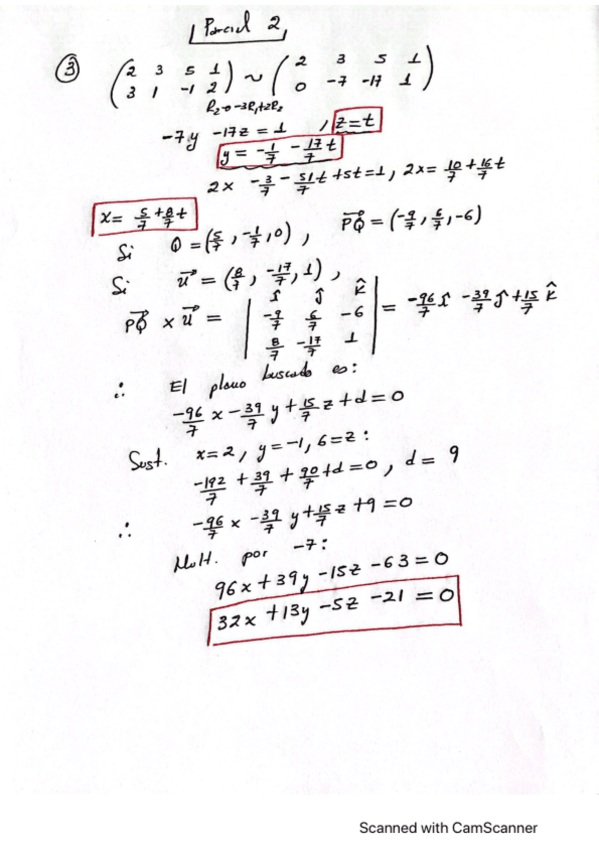 Parcial 2
③ (2 3 5 1
3 1 -1 2) ~ (2 3 5 1
0 -7 -17 1)
R₂→-3R₁+2R₂
-7y -17z = 1 , z=t
y = -1/7 - 17/7 t
2x -3/7 - 51/7 t +5t=1, 2x= 10/7 + 16/7 t
x= 5/7 + 8/7 t
Si Q = (5/7, -1/7, 0), PQ⃗ = (-9/7, 6/7, -6)
Si u⃗ = (8/7, -17/7, 1),
PQ⃗ x u⃗ = | î ĵ k̂
-9/7 6/7 -6
8/7 -17/7 1 | = -96/7 î -39/7 ĵ +15/7 k̂
∴ El plano buscado es:
-96/7 x -39/7 y + 15/7 z + d = 0
Sust. x=2, y=-1, 6=z:
-192/7 + 39/7 + 90/7 +d=0, d= 9
∴ -96/7 x -39/7 y +15/7 z +9 =0
Mult. por -7:
96x +39y -15z -63=0
32x +13y -5z -21 =0
Scanned with CamScanner